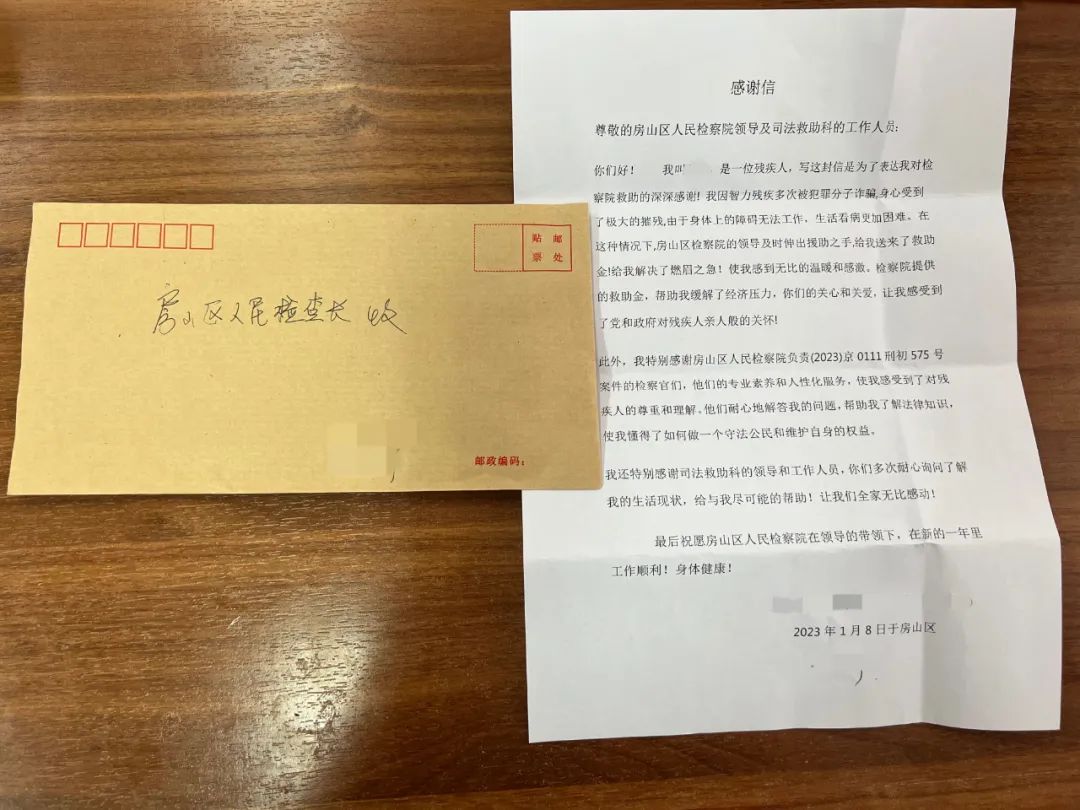 贴 邮
票 处
房山区人民检查长 收
邮政编码：
感谢信
尊敬的房山区人民检察院领导及司法救助科的工作人员：
你们好！ 我叫 是一位残疾人，写这封信是为了表达我对检
察院救助的深深感谢！我因智力残疾多次被犯罪分子诈骗,身心受到
了极大的摧残,由于身体上的障碍无法工作，生活看病更加困难。在
这种情况下,房山区检察院的领导及时伸出援助之手,给我送来了救助
金!给我解决了燃眉之急！使我感到无比的温暖和感激。检察院提供
的救助金，帮助我缓解了经济压力，你们的关心和关爱，让我感受到
了党和政府对残疾人亲人般的关怀!
此外，我特别感谢房山区人民检察院负责(2023)京 0111 刑初 575 号
案件的检察官们，他们的专业素养和人性化服务，使我感受到了对残
疾人的尊重和理解。他们耐心地解答我的问题，帮助我了解法律知识，
使我懂得了如何做一个守法公民和维护自身的权益。
我还特别感谢司法救助科的领导和工作人员，你们多次耐心询问了解
我的生活现状，给与我尽可能的帮助！让我们全家无比感动！
最后祝愿房山区人民检察院在领导的带领下，在新的一年里
工作顺利！身体健康！
2023 年 1 月 8 日于房山区